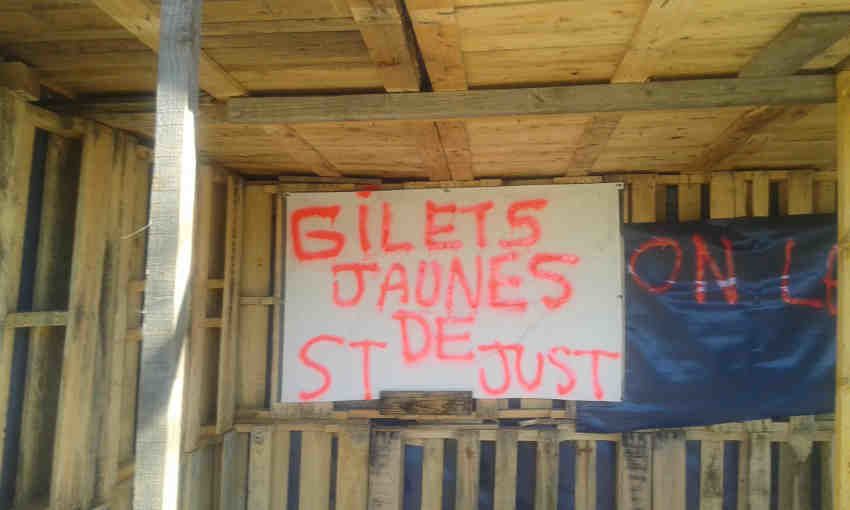 GILETS
JAUNES
DE
ST JUST
ON L